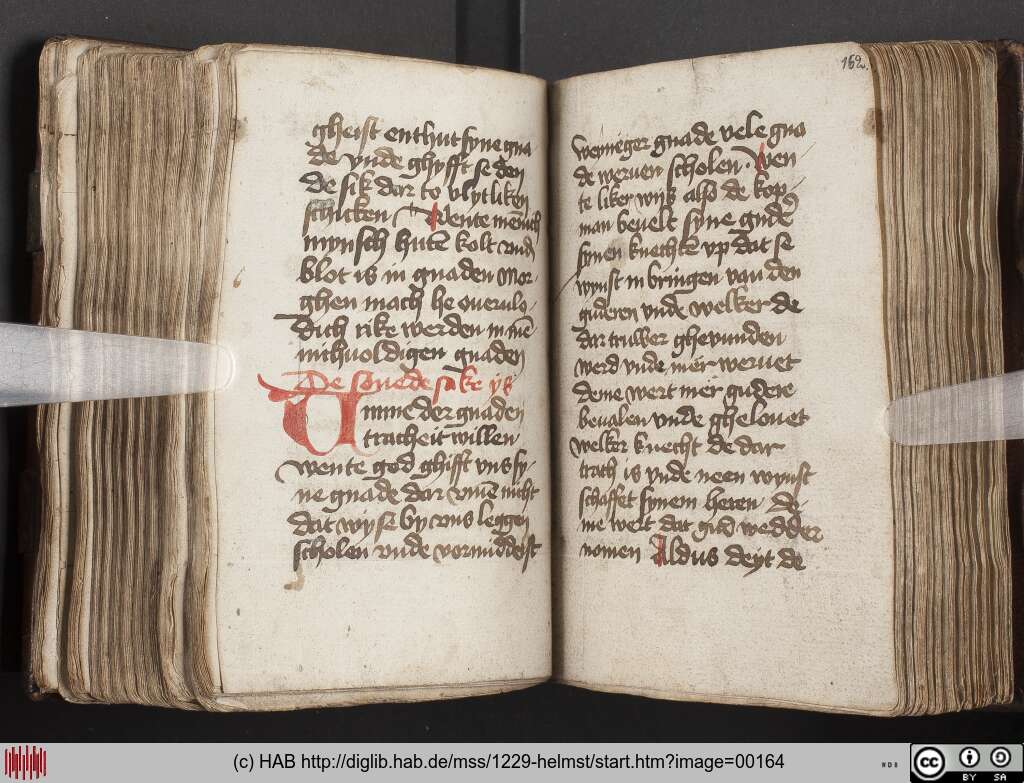 gheist enthut syne gna
de vnde ghyfft se den
de sik dar to vlytliken
schicken Wente mēnich
mynsch hutē kolt vnd
blot is in gnaden mor
ghen mach he ouerulo
dich rike werden in mē
nichuoldigen gnaden
De souede sake ys
Vmme der gnaden
tracheit willen
wente god ghifft vns sy
ne gnade dar vmē nicht
dat wy se by vns leggen
scholen vnde vormiddelst
162
weyniger gnade vele gna
de weruen scholen. Wen
te liker wijs alse de kop
man beuelt syne gudē
synen knechtē vp dat se
wynst in bringen van den
guderen vnde welker de
dar truwer gheuunden
werd vnde mer weruet
deme wert mer gudere
beualen vnde ghelouet
welker knecht de dar
trach is vnde neen wynst
schaffet synem heren de
me wert dat gud wedder
nomen Aldus deyt de
(c) HAB http://diglib.hab.de/mss/1229-helmst/start.htm?image=00164
WDB
CC BY SA